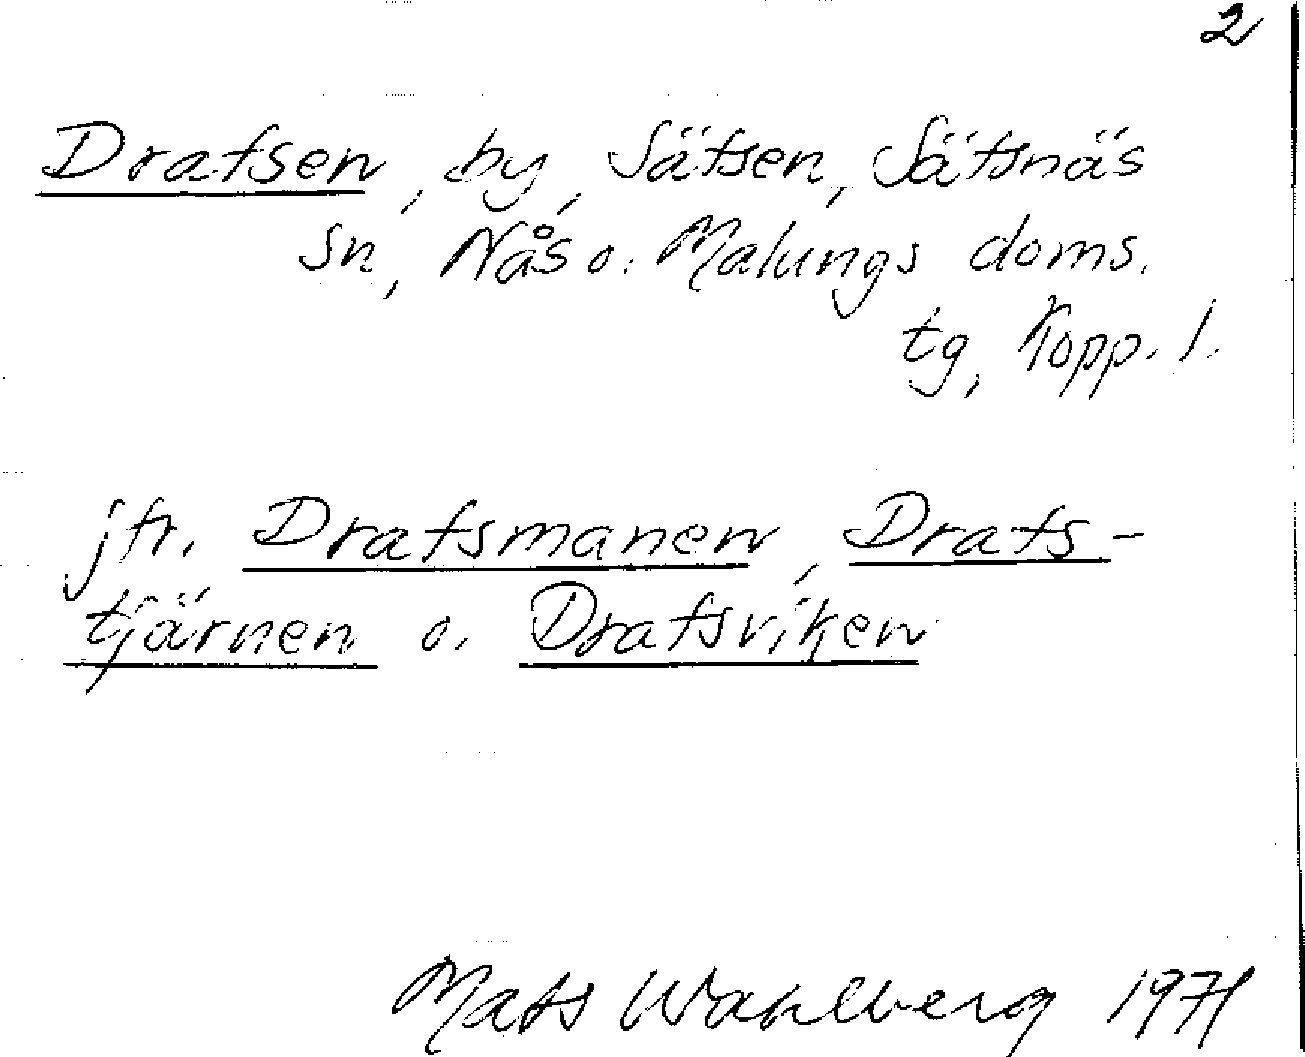 2
Drafsen, by, Säfsen, Säfsnäs
sn, Nås o. Malungs doms.
tg, Kopp. l.
jfr. Drafsmanen, Drafs-
tjärnen o. Drafsviken
Mats Wahlberg 1971